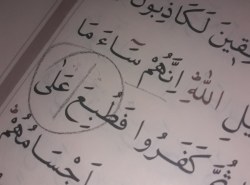 ـقِينَ لَكَاذِبُونَ
ـلِ اللَّهِ إِنَّهُمْ سَاءَ مَا
ثُمَّ كَفَرُوا فَطُبِعَ عَلَى
أَجْسَامُهُمْ